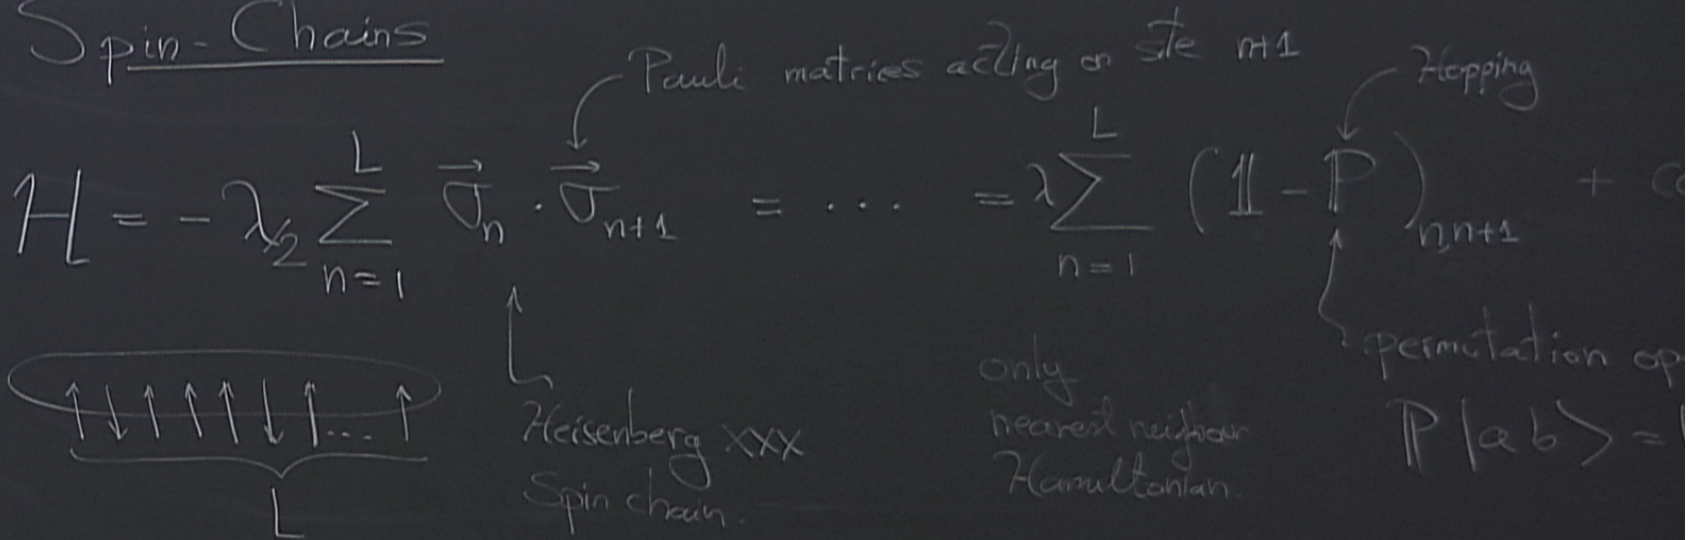 Spin-Chains
Pauli matrices acting on site n+1
Hopping
H = -λ/2 ∑_{n=1}^{L} σ⃗_n · σ⃗_{n+1} = ... = λ ∑_{n=1}^{L} (𝟙 - ℙ)_{n,n+1} +
↑↓↑↑↑↓↑...↑
L
Heisenberg XXX
Spin chain.
only
nearest neighbour
Hamiltonian.
permutation op
ℙ|ab> =